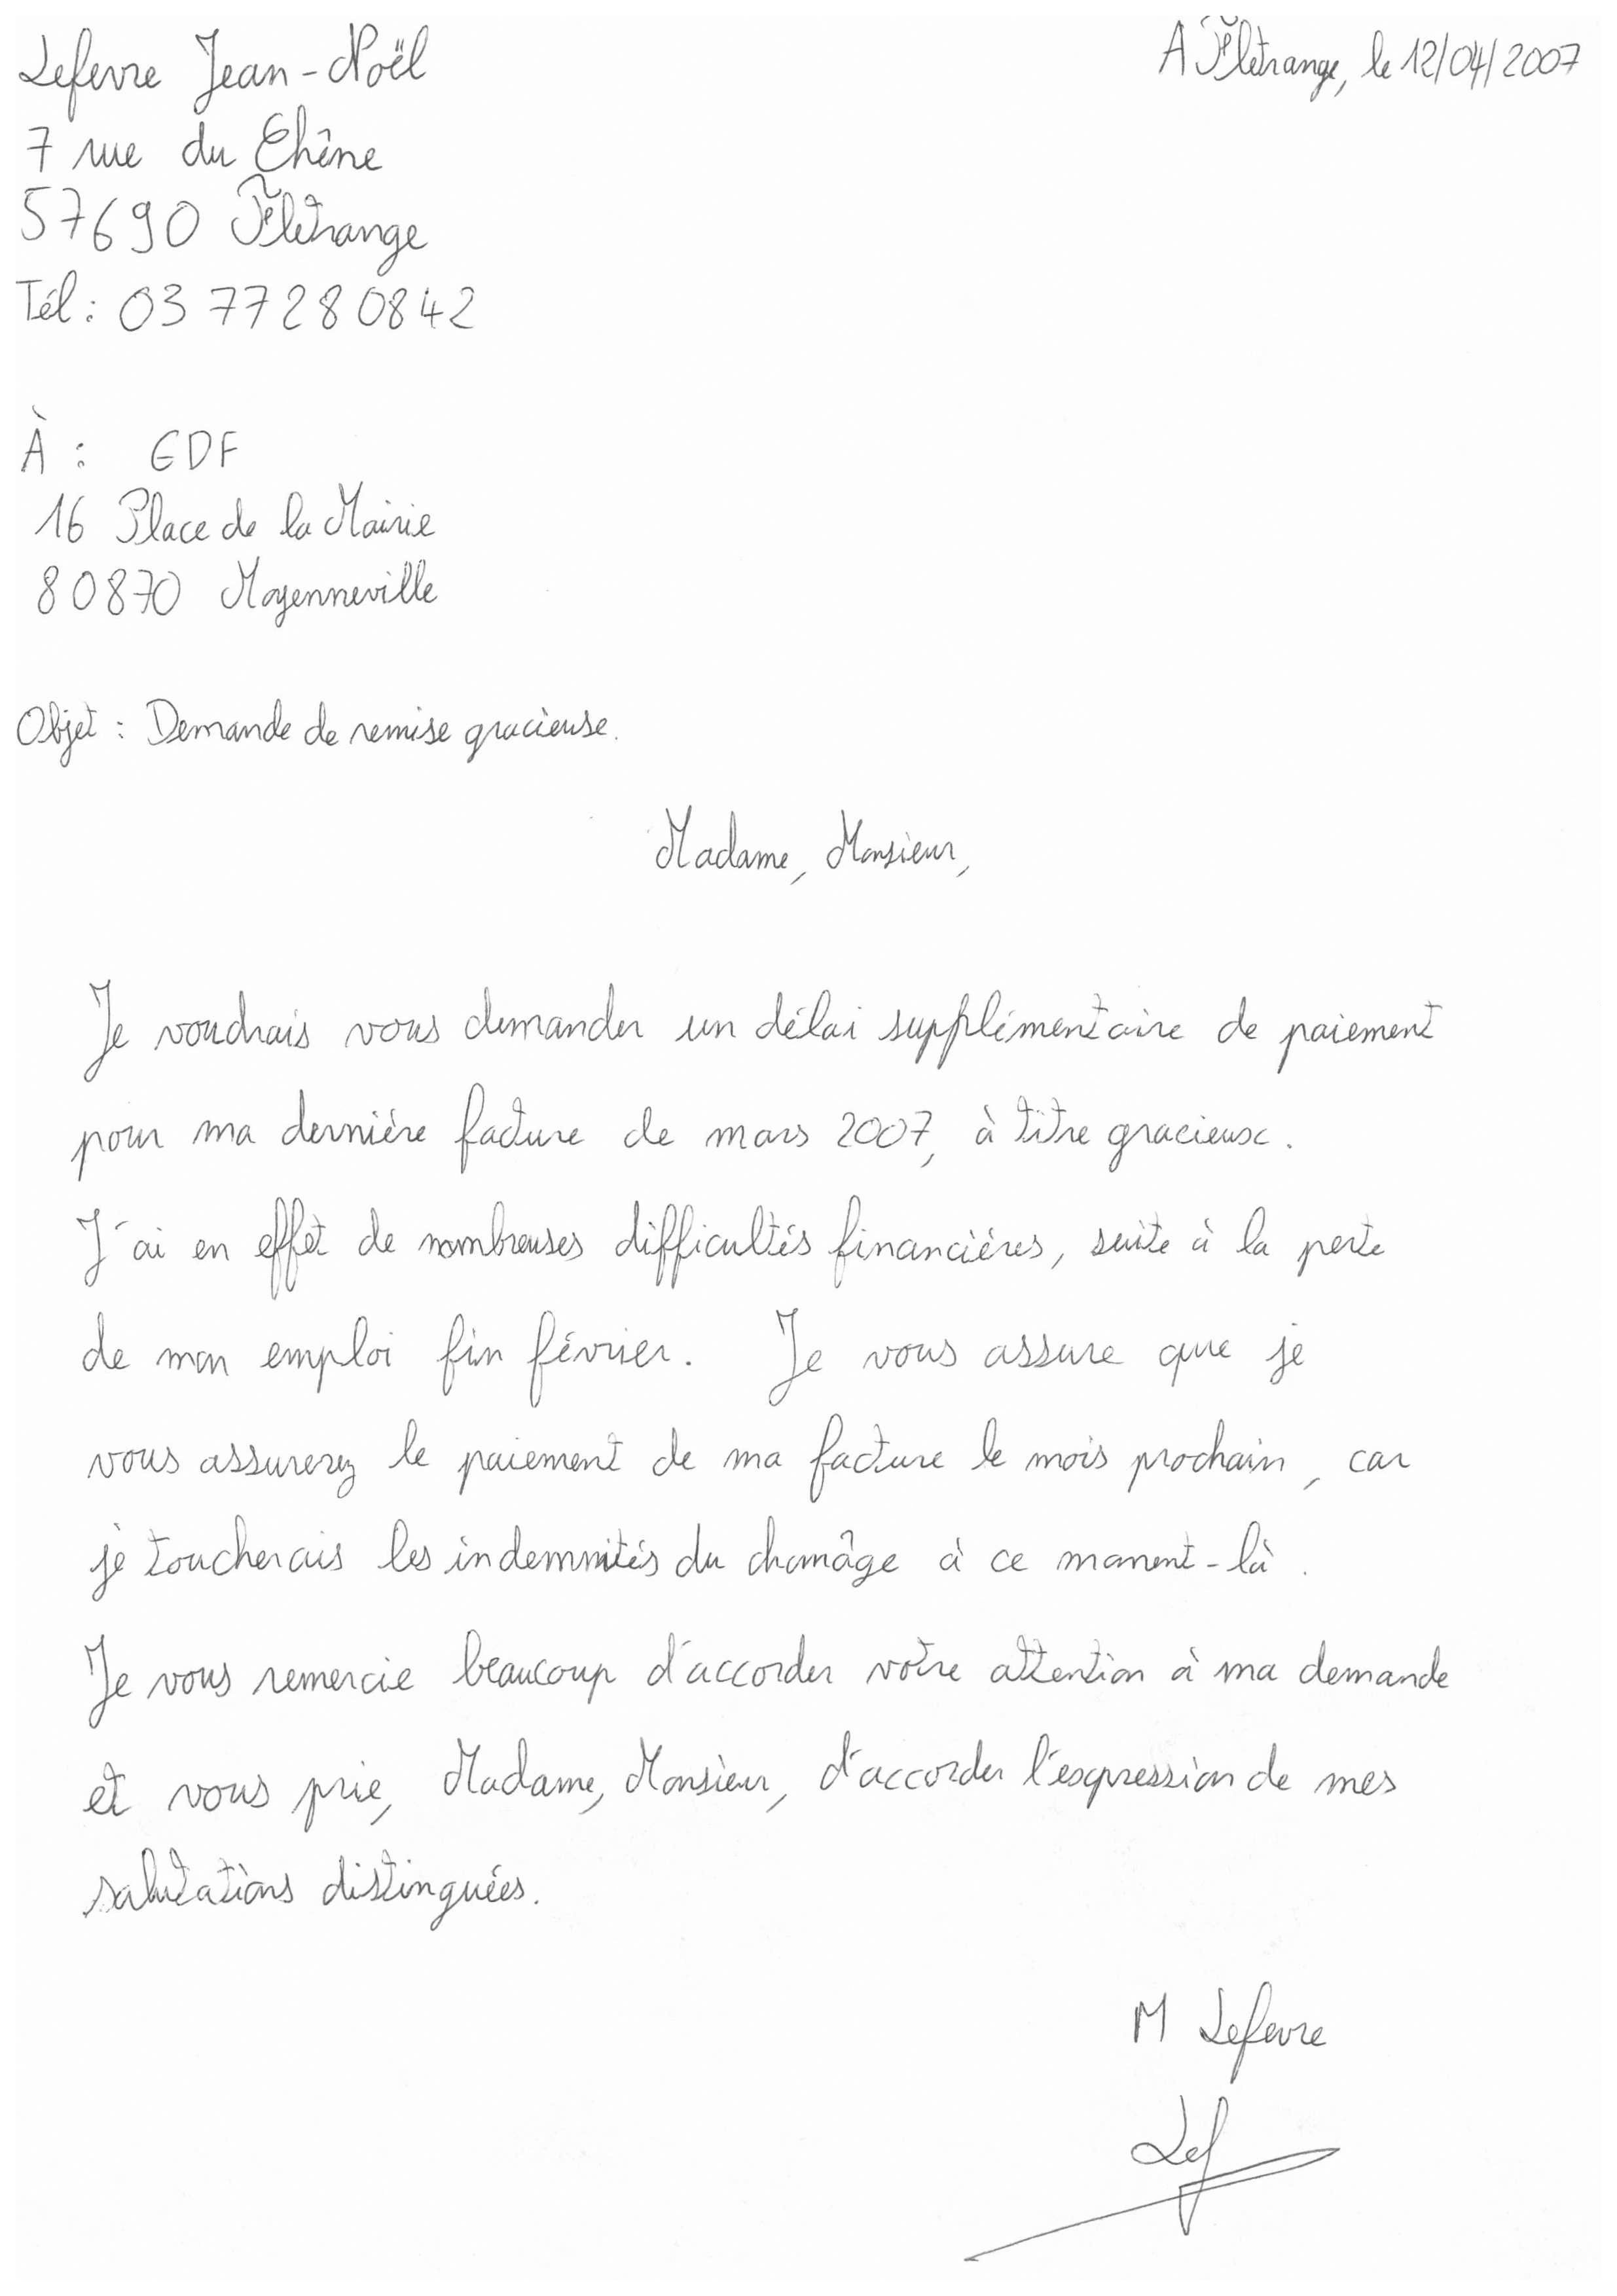 Lefevre Jean-Noël
A Flétrange, le 12/04/2007
7 rue du Chêne
57690 Flétrange
Tél : 03 77 28 08 42
À : EDF
16 Place de la Mairie
80870 Moyenneville
Objet : Demande de remise gracieuse.
Madame, Monsieur,
Je voudrais vous demander un délai supplémentaire de paiement
pour ma dernière facture de mars 2007, à titre gracieux.
J'ai en effet de nombreuses difficultés financières, suite à la perte
de mon emploi fin février. Je vous assure que je
vous assurerez le paiement de ma facture le mois prochain, car
je toucherais les indemnités du chomâge à ce moment-là.
Je vous remercie beaucoup d'accorder votre attention à ma demande
et vous prie, Madame, Monsieur, d'accorder l'expression de mes
salutations distinguées.
M Lefevre
Lef